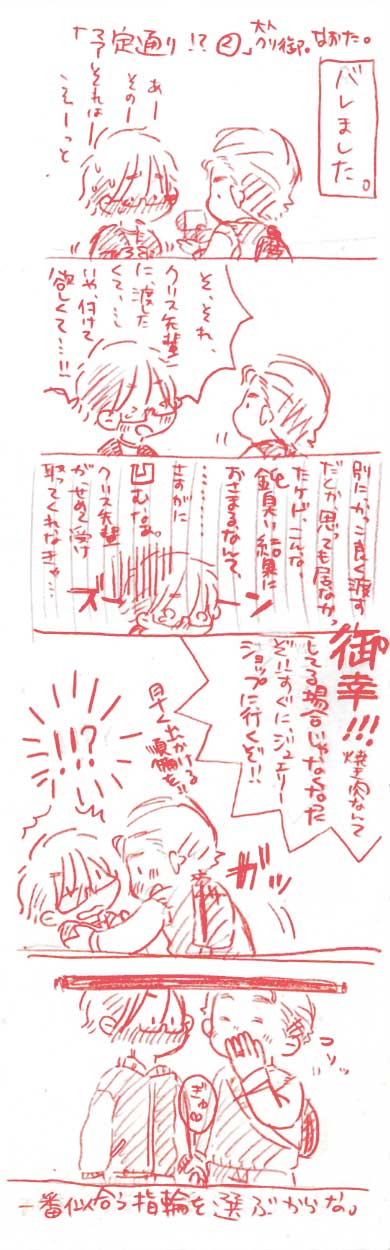 「予定通り!?②」 大人クリ御。なおた。
バレました。
あー
そのー
それはー
えーっと
そ、それ、
クリス先輩
に渡した
くて、…
いや、付けて
欲しくて…!!
別に、かっこ良く渡す
だとか、思っても居なかっ
たケド、こんな
鈍臭い結果に
おさまるなんて、
………
さすがに
凹むなぁ。
クリス先輩
がせめて受け
取ってくれなきゃ…
ズーーン
御幸!!!
焼き肉なんて
してる場合じゃなくなった
ぞ!!すぐにジュエリー
ショップに行くぞ!!
早く出かける
準備を!!
!!?
ガッ
コソッ
ぎゅ
一番似合う指輪を選ぶからな。